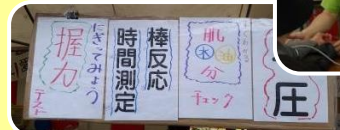 にぎってみよう
握力
テスト
棒反応
時間測定
肌
水 油
分
チェック
圧